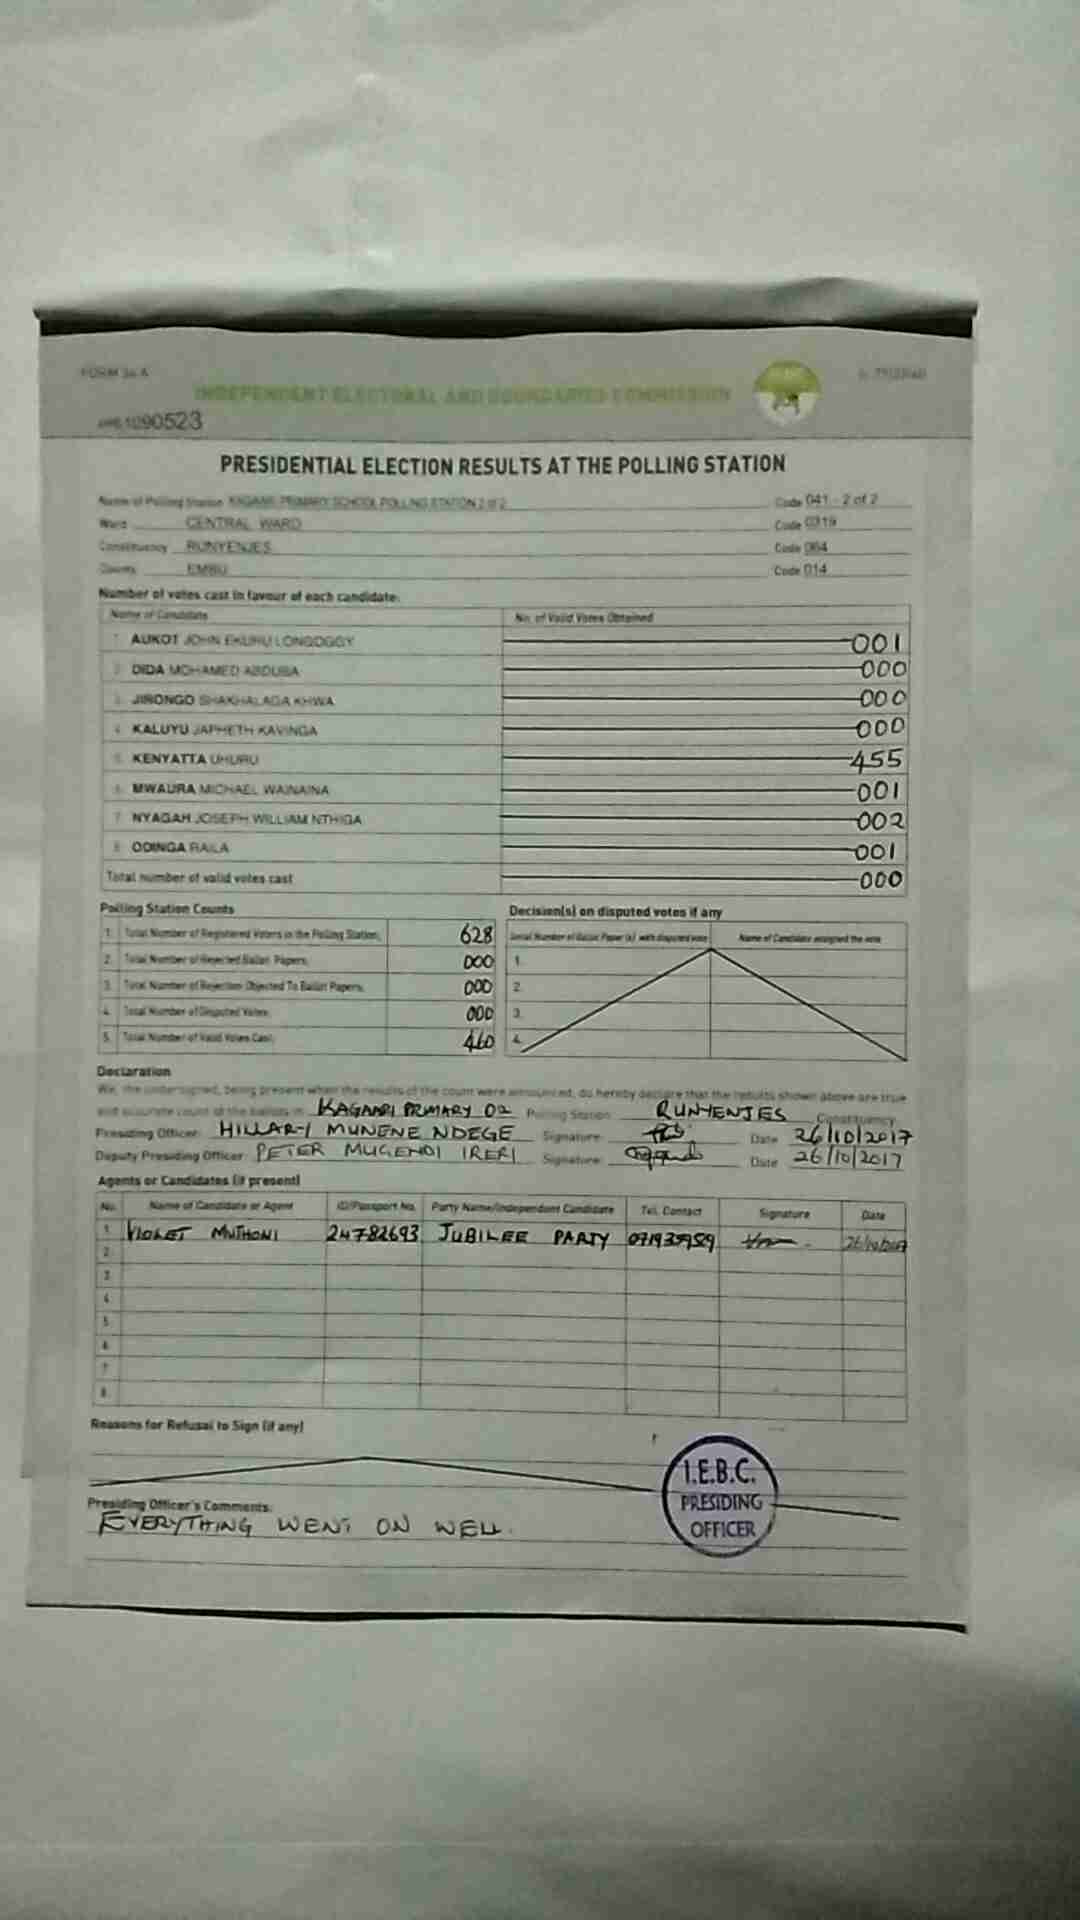 FORM 34 A
INDEPENDENT ELECTORAL AND BOUNDARIES COMMISSION
1090523
PRESIDENTIAL ELECTION RESULTS AT THE POLLING STATION
Name of Polling Station PRIMARY SCHOOL POLLING STATION 2 of 2 Code 041 - 2 of 2
Ward CENTRAL WARD Code 0319
Constituency RUNYENJES Code 064
County EMBU Code 014
Number of votes cast in favour of each candidate:
Name of Candidate No. of Valid Votes Obtained
1. AUKOT JOHN EKURU LONGOGGY 001
2. DIDA MOHAMED ABDUBA 000
3. JIRONGO SHAKHALAGA KHWA 000
4. KALUYU JAPHETH KAVINGA 000
5. KENYATTA UHURU 455
6. MWAURA MICHAEL WAINAINA 001
7. NYAGAH JOSEPH WILLIAM NTHIGA 002
8. ODINGA RAILA 001
Total number of valid votes cast 000
Polling Station Counts
1. Total Number of Registered Voters in the Polling Station 628
2. Total Number of Rejected Ballot Papers 000
3. Total Number of Rejection Objected To Ballot Papers 000
4. Total Number of Disputed Votes 000
5. Total Number of Valid Votes Cast 460
Decision(s) on disputed votes if any
Serial Number of Ballot Paper (s) with disputed vote Name of Candidate assigned the vote
1.
2.
3.
4.
Declaration
We, the undersigned, being present when the results of the count were announced, do hereby declare that the results shown above are true
and accurate count of the ballots in KAGAARI PRIMARY 02 Polling Station RUNYENJES Constituency
Presiding Officer: HILLARY MUNENE NDEGE Signature: Date 26/10/2017
Deputy Presiding Officer PETER MUGENDI IRERI Signature: Date 26/10/2017
Agents or Candidates (if present)
No. Name of Candidate or Agent ID/Passport No. Party Name/Independent Candidate Tel. Contact Signature Date
1. VIOLET MUTHONI 24782693 JUBILEE PARTY 26/10/2017
2.
3.
4.
5.
6.
7.
8.
Reasons for Refusal to Sign (if any)
I.E.B.C.
PRESIDING
OFFICER
Presiding Officer's Comments:
EVERYTHING WENT ON WELL.